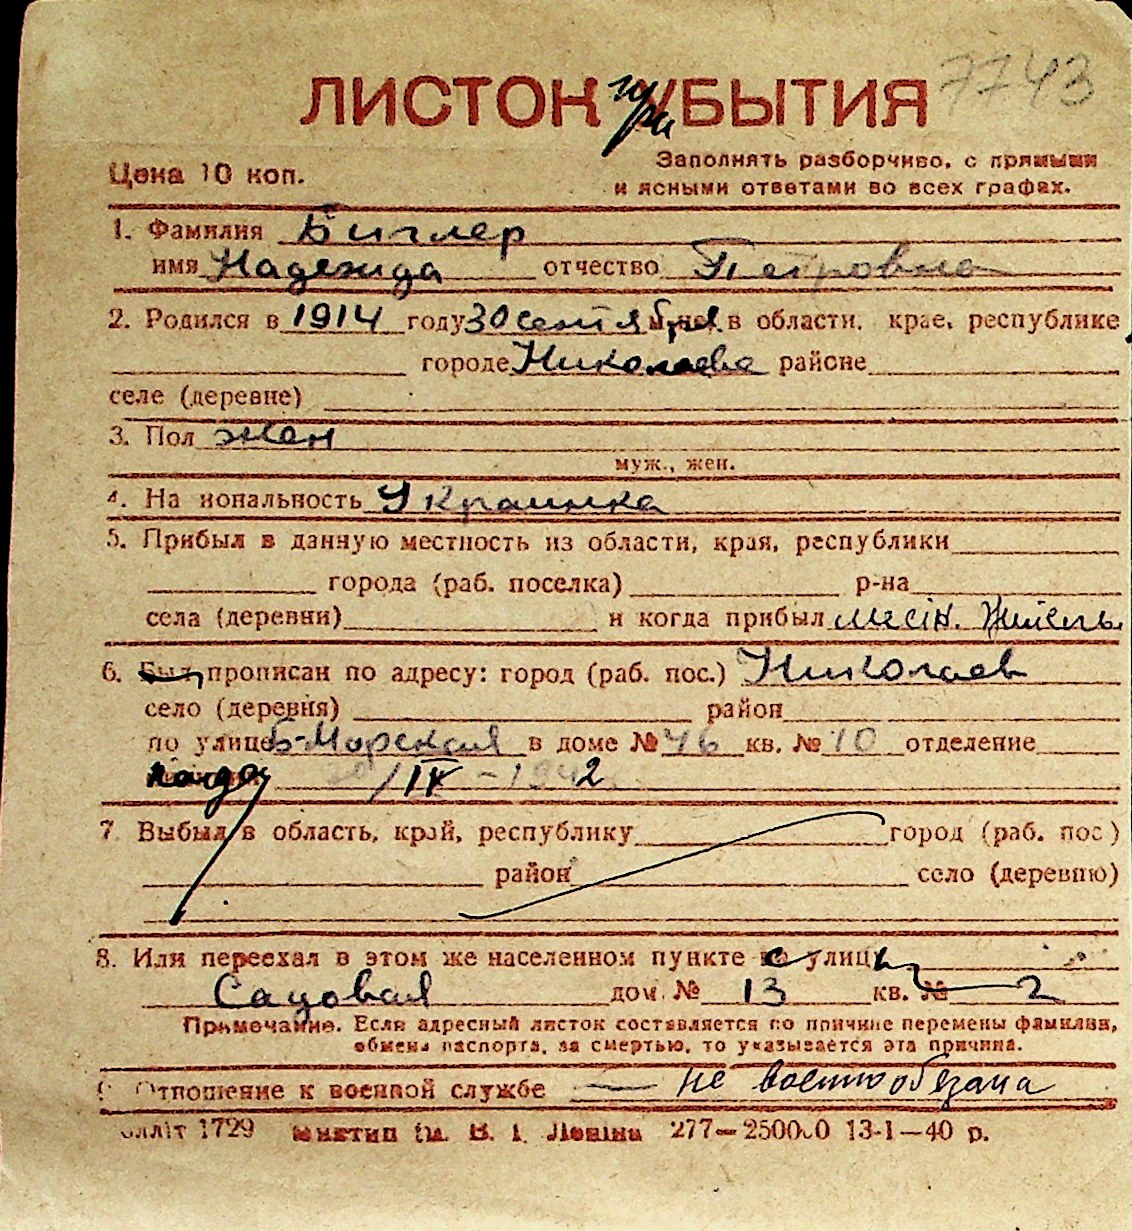 7743
ЛИСТОК при УБЫТИЯ
Цена 10 коп.
Заполнять разборчиво, с прямыми
и ясными ответами во всех графах.
1. Фамилия Биглер
имя Надежида отчество Петровна
2. Родился в 1914 году 30 сентября м-це в области, крае, республике
городе Николаеве районе
селе (деревне)
3. Пол жен
муж., жен.
4. На иональность Украинка
5. Прибыл в данную местность из области, края, республики
города (раб. поселка) р-на
села (деревни) и когда прибыл местн. житель
6. Был прописан по адресу: город (раб. пос.) Николаев
село (деревня) район
по улице Б-Морская в доме № 46 кв. № 10 отделение
когда /IX-1942
7 Выбыл в область, край, республику город (раб. пос)
район село (деревню)
8. Или переехал в этом же населенном пункте с улицы
Садовая дом № 13 кв. № 2
Примечание. Если адресный листок составляется по причине перемены фамилии,
обмена паспорта, за смертью, то указывается эта причина.
9 Отношение к военной службе — не военнообязана
олліт 1729 ім. В. І. Леніна 277—250000 13-1—40 р.